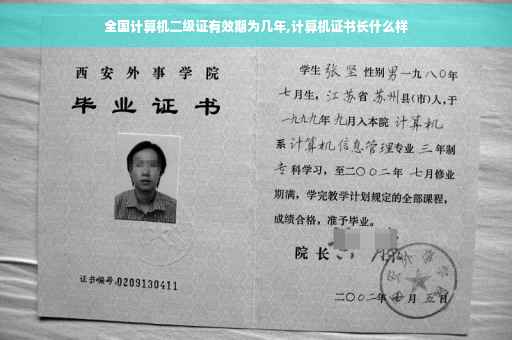 全国计算机二级证有效期为几年,计算机证书长什么样
西安外事学院
毕业证书
证书编号:0209130411
学生 张坚 性别男一九八〇年
七月生，江苏省苏州县(市)人,于
一九九九年九月入本院 计算机
系计算机信息管理专业 三 年制
专科学习，至二〇〇二年 七月修业
期满，学完教学计划规定的全部课程，
成绩合格，准予毕业。
院长
二〇〇二年 七月 五日